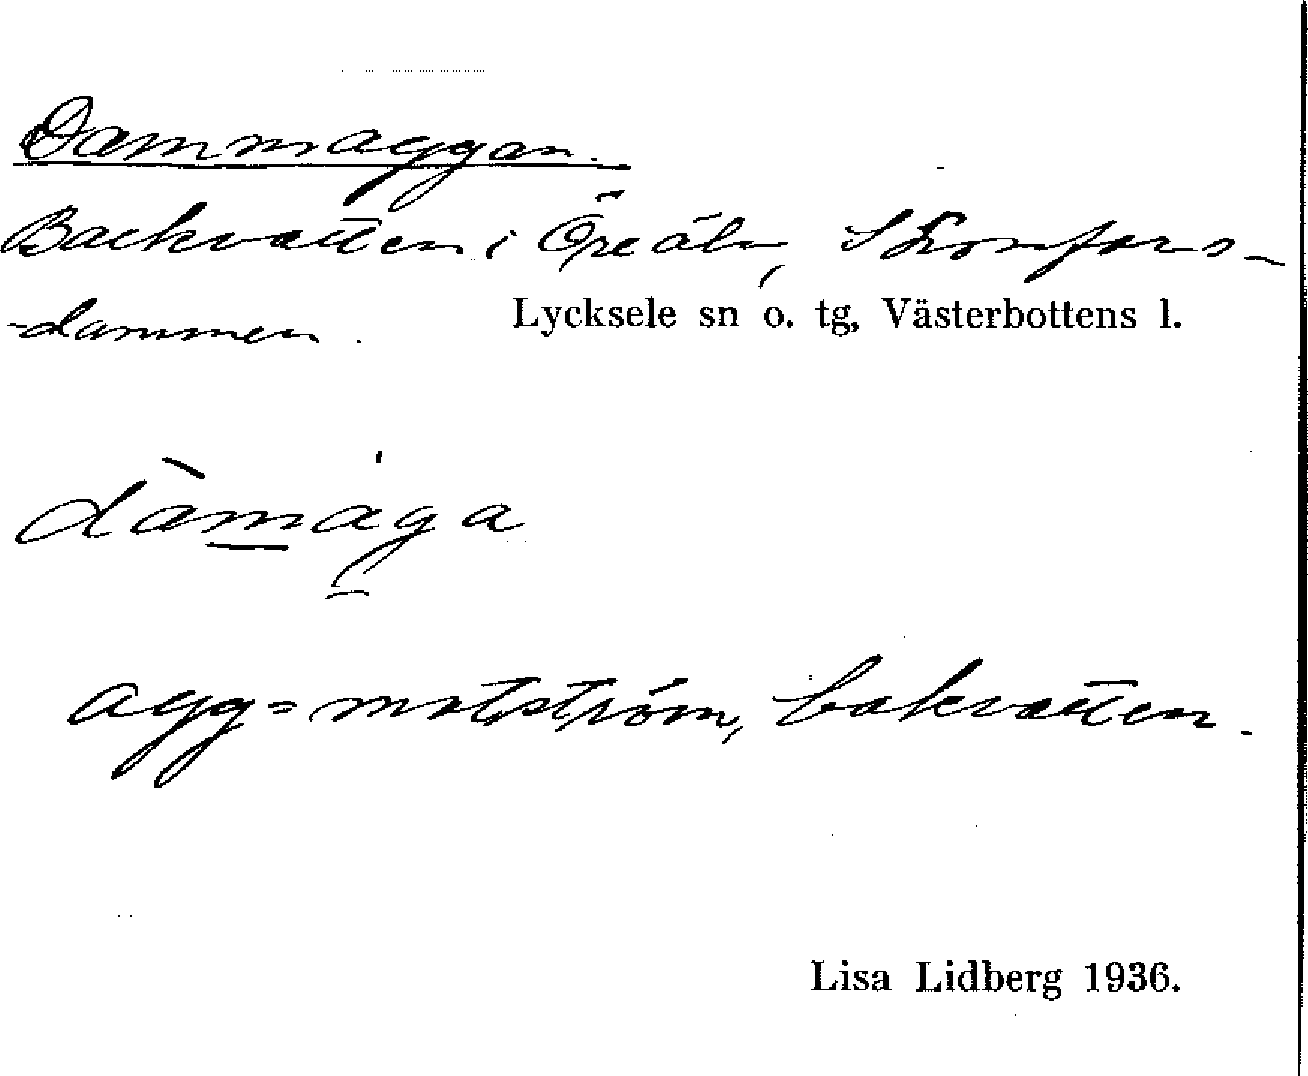 Dammaggan.
Backvatten i Öre älv,
-dammen.
Lycksele sn o. tg, Västerbottens l.
dàmaga
agg = motström, bakvatten.
Lisa Lidberg 1936.